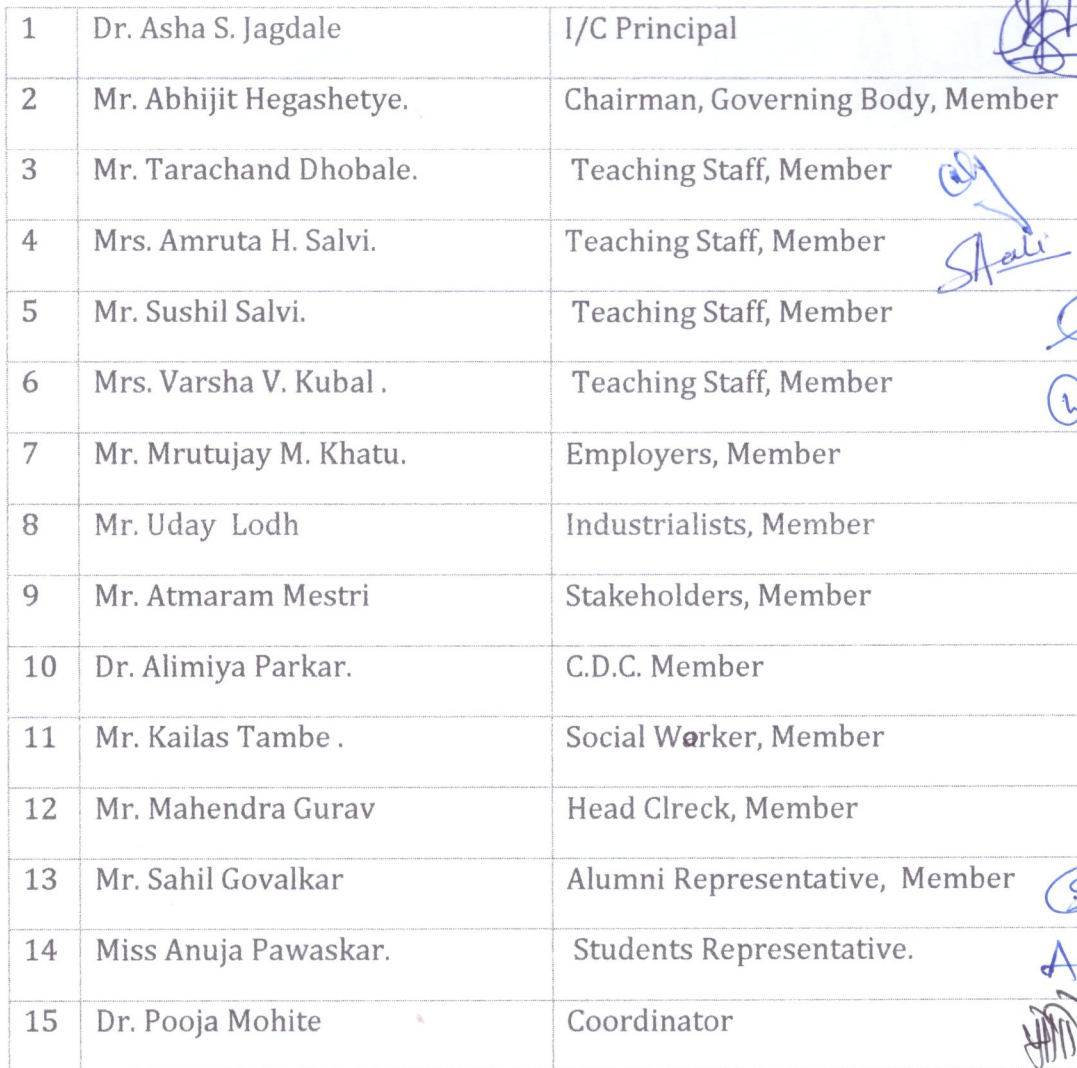 1 Dr. Asha S. Jagdale I/C Principal
2 Mr. Abhijit Hegashetye. Chairman, Governing Body, Member
3 Mr. Tarachand Dhobale. Teaching Staff, Member
4 Mrs. Amruta H. Salvi. Teaching Staff, Member
5 Mr. Sushil Salvi. Teaching Staff, Member
6 Mrs. Varsha V. Kubal . Teaching Staff, Member
7 Mr. Mrutujay M. Khatu. Employers, Member
8 Mr. Uday Lodh Industrialists, Member
9 Mr. Atmaram Mestri Stakeholders, Member
10 Dr. Alimiya Parkar. C.D.C. Member
11 Mr. Kailas Tambe . Social Worker, Member
12 Mr. Mahendra Gurav Head Clreck, Member
13 Mr. Sahil Govalkar Alumni Representative, Member
14 Miss Anuja Pawaskar. Students Representative.
15 Dr. Pooja Mohite Coordinator